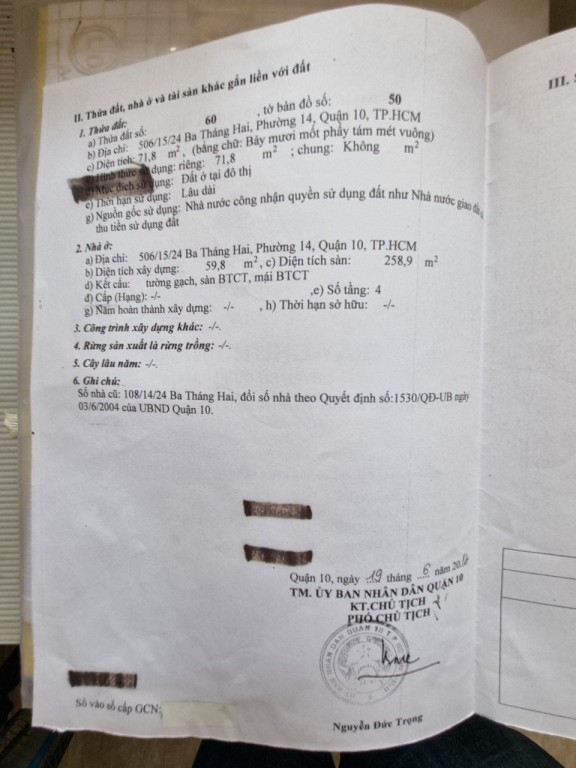 II. Thửa đất, nhà ở và tài sản khác gắn liền với đất
1. Thửa đất:
a) Thửa đất số: 60 , tờ bản đồ số: 50
b) Địa chỉ: 506/15/24 Ba Tháng Hai, Phường 14, Quận 10, TP.HCM
c) Diện tích: 71,8 m², (bằng chữ: Bảy mươi mốt phẩy tám mét vuông)
sử dụng: riêng: 71,8 m² ; chung: Không m²
Mục đích sử dụng: Đất ở tại đô thị
e) Thời hạn sử dụng: Lâu dài
g) Nguồn gốc sử dụng: Nhà nước công nhận quyền sử dụng đất như Nhà nước giao đất
thu tiền sử dụng đất
2. Nhà ở:
a) Địa chỉ: 506/15/24 Ba Tháng Hai, Phường 14, Quận 10, TP.HCM
b) Diện tích xây dựng: 59,8 m², c) Diện tích sàn: 258,9 m²
d) Kết cấu: tường gạch, sàn BTCT, mái BTCT
đ) Cấp (Hạng): -/- ,e) Số tầng: 4
g) Năm hoàn thành xây dựng: -/- , h) Thời hạn sở hữu: -/-
3. Công trình xây dựng khác: -/-.
4. Rừng sản xuất là rừng trồng: -/-.
5. Cây lâu năm: -/-.
6. Ghi chú:
Số nhà cũ: 108/14/24 Ba Tháng Hai, đổi số nhà theo Quyết định số:1530/QĐ-UB ngày
03/6/2004 của UBND Quận 10.
Quận 10, ngày 19 tháng 6 năm
TM. ỦY BAN NHÂN DÂN QUẬN 10
KT.CHỦ TỊCH
PHÓ CHỦ TỊCH
Số vào sổ cấp GCN:
Nguyễn Đức Trọng
III.